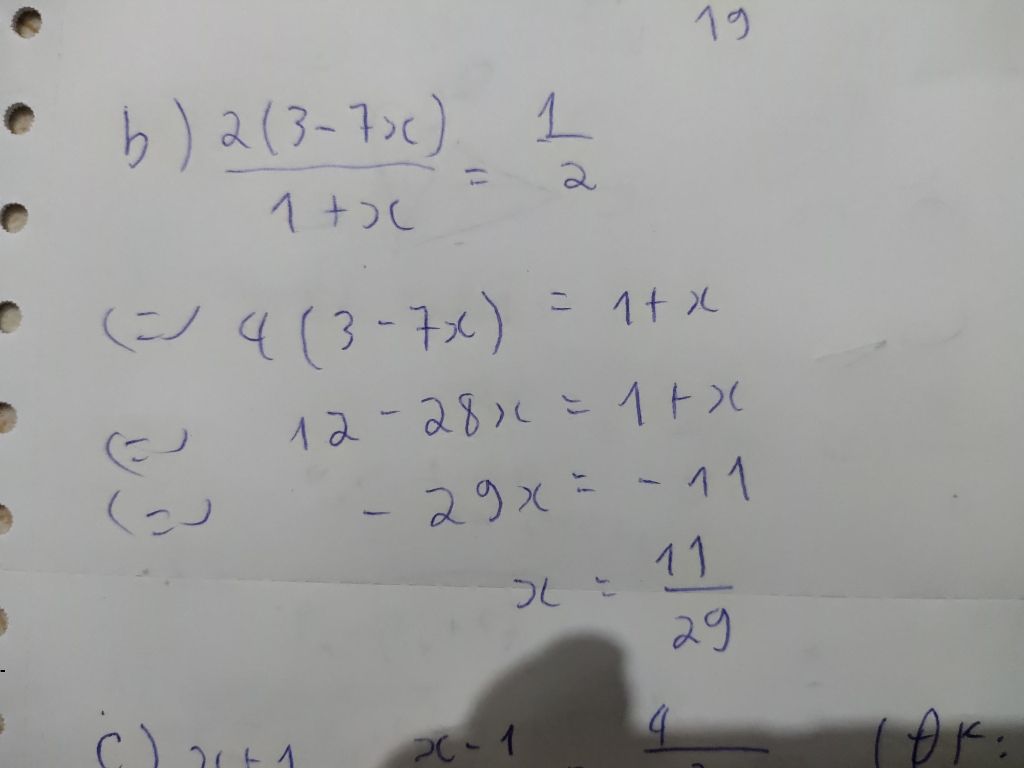 19
b) 2(3-7x)/1+x = 1/2
(=) 4(3-7x) = 1+x
(=) 12-28x = 1+x
(=) -29x = -11
x = 11/29
c) x+1 x-1 4 (ĐK: